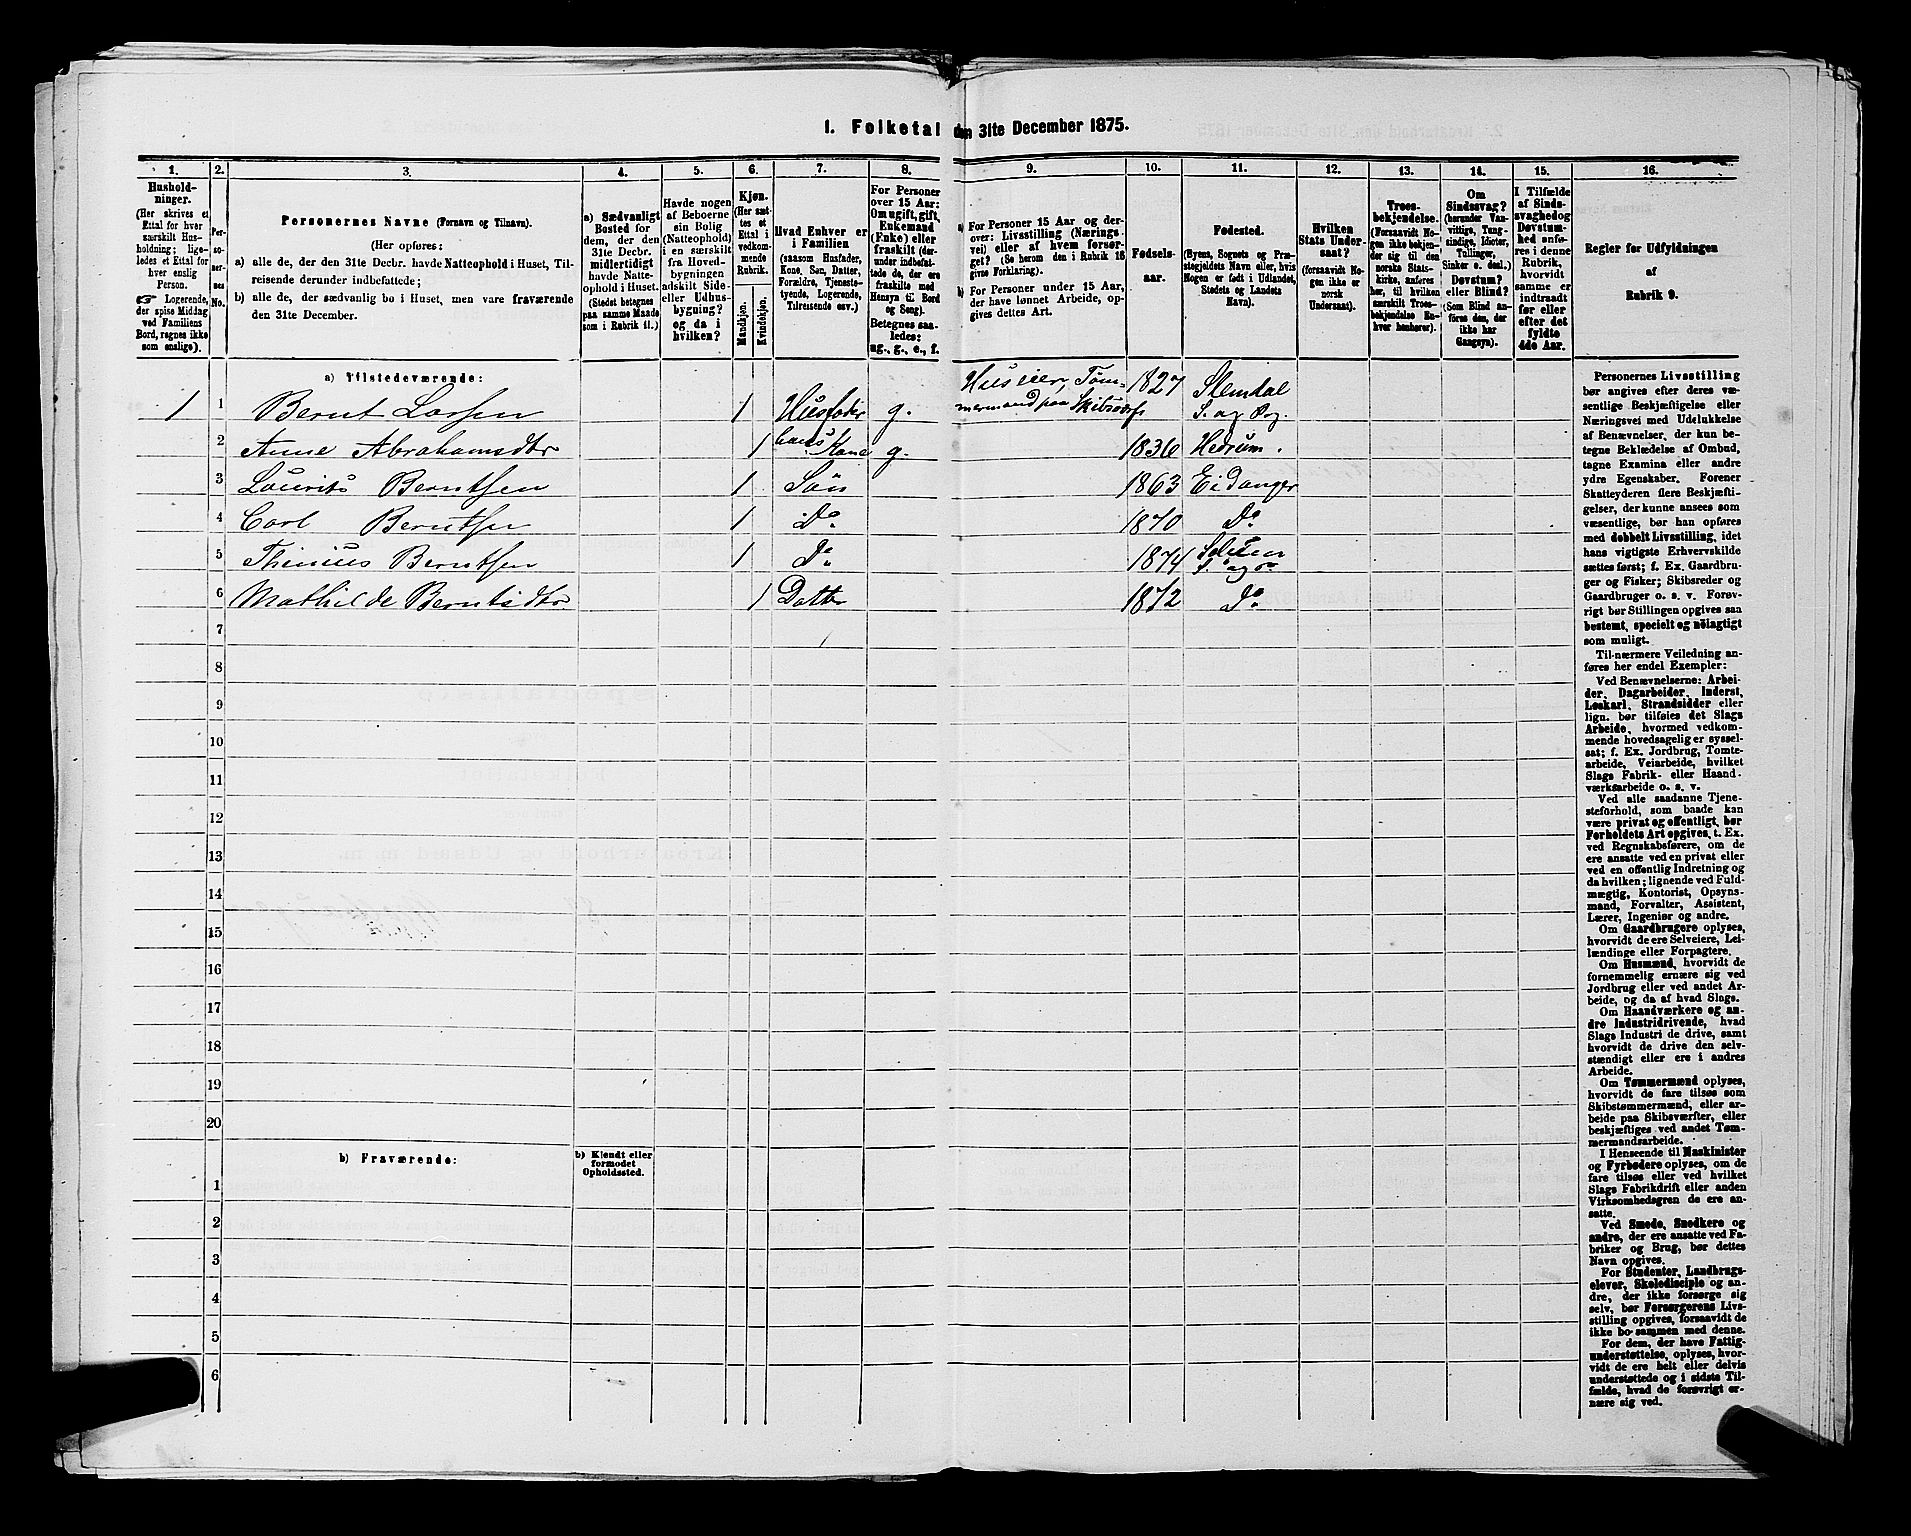 1. Folketal den 31te December 1875.
1. 2. 3. 4. 5. 6. 7. 8. 9. 10. 11. 12. 13. 14. 15. 16.
Hushold-
ninger.
(Her skrives et
Ettal for hver
særskilt Hus-
holdning; lige-
ledes et Ettal for
hver enslig
Person.
☞ Logerende,
der spise Middag
ved Familiens
Bord, regnes ikke
som enslige).
Per-
so-
ner-
nes
No.
Personernes Navne (Fornavn og Tilnavn).
(Her opføres:
a) alle de, der den 31te Decbr. havde Natteophold i Huset, Til-
reisende derunder indbefattede;
b) alle de, der sædvanlig bo i Huset, men vare fraværende
den 31te December.
a) Sædvanligt
Bosted for
dem, der den
31te Decbr.
midlertidigt
havde Natte-
ophold i Huset.
(Stedet betegnes
paa samme Maade
som i Rubrik 11.)
Havde nogen
af Beboerne
sin Bolig
(Natteophold)
i en særskilt
fra Hoved-
bygningen
adskilt Side-
eller Udhus-
bygning?
og da i
hvilken?
Kjøn.
(Her sæt-
tes et
Ettal i
vedkom-
mende
Rubrik.
Mandkjøn.
Kvindekjøn.
Hvad Enhver er
i Familien
(saasom Husfader,
Kone, Søn, Datter,
Forældre, Tjeneste-
tyende, Logerende,
Tilreisende osv.)
For Personer
over 15 Aar:
Om ugift, gift,
Enkemand
(Enke) eller
fraskilt (der-
under indbefat-
tede de, der ere
fraskilte med
Hensyn til Bord
og Seng).
Betegnes saa-
ledes:
ug., g., e., f.
a) For Personer 15 Aar og der-
over: Livsstilling (Nærings-
vei) eller af hvem forsør-
get? (Se herom den i Rubrik 16
givne Forklaring).
b) For Personer under 15 Aar,
der have lønnet Arbeide, op-
gives dettes Art.
Fødsels-
aar.
Fødested.
(Byens, Sognets og Præ-
stegjeldets Navn eller, hvis
Nogen er født i Udlandet,
Stedets og Landets
Navn).
Hvilken
Stats Under-
saat?
(forsaavidt No-
gen ikke er
norsk
Undersaat).
Troes-
bekjendelse.
(Forsaavidt No-
gen ikke bekjen-
der sig til den
norske Stats-
kirke, anføres
her, til hvilken
særskilt Troes-
bekjendelse En-
hver henhører).
Om
Sindssvag?
(herunder Van-
vittige, Tung-
sindige, Idioter,
Tullinger,
Sinker o. desl.)
Døvstum?
eller Blind?
(Som Blind an-
føres den, der
ikke har
Gangsyn).
I Tilfælde
af Sinds-
svaghed og
Døvstum-
hed anfø-
res i denne
Rubrik,
hvorvidt
samme er
indtraadt
før eller
efter det
fyldte
4de Aar.
Regler for Udfyldningen
af
Rubrik 9.
a) Tilstedeværende:
1 1 Bernt Larsen 1 Husfader g. Huseier, Tøm-
mermand paa Skibsværft 1827 Slemdal
S. og Prg.
2 Anne Abrahamsdtr 1 hans Kone g. 1836 Hedrum.
3 Lourits Berntsen 1 Søn 1863 Eidanger
4 Carl Berntsen 1 Do 1870 Do
5 Thinius Berntsen 1 Do 1874
6 Mathilde Berntsdtr 1 Datter 1872 Do
7
8
9
10
11
12
13
14
15
16
17
18
19
20
b) Fraværende:
b) Kjendt eller
formodet
Opholdssted.
1
2
3
4
5
6
Personernes Livsstilling
bør angives efter deres væ-
sentlige Beskjæftigelse eller
Næringsvei med Udelukkelse
af Benævnelser, der kun be-
tegne Beklædelse af Ombud,
tagne Examina eller andre
ydre Egenskaber. Forener
Skatteyderen flere Beskjæfti-
gelser, der kunne ansees som
væsentlige, bør han opføres
med dobbelt Livsstilling, idet
hans vigtigste Erhvervskilde
sættes først; f. Ex. Gaardbru-
ger og Fisker; Skibsreder og
Gaardbruger o. s. v. Forøv-
rigt bør Stillingen opgives saa
bestemt, specielt og nöiagtigt
som muligt.
Til nærmere Veiledning an-
føres her endel Exempler:
Ved Benævnelserne: Arbei-
der, Dagarbeider, Inderst,
Løskarl, Strandsidder eller
lign. bør tilføies det Slags
Arbeide, hvormed vedkom-
mende hovedsagelig er syssel-
sat; f. Ex. Jordbrug, Tomte-
arbeide, Veiarbeide, hvilket
Slags Fabrik- eller Haand-
værksarbeide o. s. v.
Ved alle saadanne Tjene-
steforhold, som baade kan
være privat og offentligt, bør
Forholdets Art opgives, t. Ex.
ved Regnskabsførere, om de
ere ansatte ved en privat eller
ved en offentlig Indretning og
da hvilken; lignende ved Fuld-
mægtig, Kontorist, Opsyns-
mand, Forvalter, Assistent,
Lærer, Ingeniør og andre.
Om Gaardbrugere oplyses,
hvorvidt de ere Selveiere, Lei-
lændinge eller Forpagtere.
Om Husmænd, hvorvidt de
fornemmelig ernære sig ved
Jordbrug eller ved andet Ar-
beide, og da af hvad Slags.
Om Haandværkere og an-
dre Industridrivende, hvad
Slags Industri de drive, samt
hvorvidt de drive den selv-
stændigt eller ere i andres
Arbeide.
Om Tømmermænd oplyses,
hvorvidt de fare tilsøs som
Skibstømmermænd, eller ar-
beide paa Skibsværfter, eller
beskjæftiges ved andet Tøm-
mermandsarbeide.
I Henseende til Maskinister
og Fyrbødere oplyses, om de
fare tilsøs eller ved hvilket
Slags Fabrikdrift eller anden
Virksomhedsgren de ere an-
satte.
Ved Smede, Snedkere og
andre, der ere ansatte ved Fa-
briker og Brug, bør dettes
Navn opgives.
For Studenter, Landbrugs-
elever, Skoledisciple og an-
dre, der ikke forsørge sig
selv, bør Forsørgerens Livs-
stilling opgives, forsaavidt de
ikke bo sammen med denne.
For dem, der have Fattig-
understøttelse, oplyses, hvor-
vidt de ere helt eller delvis
understøttede og i sidste Til-
fælde, hvad de forøvrigt er-
nære sig ved.